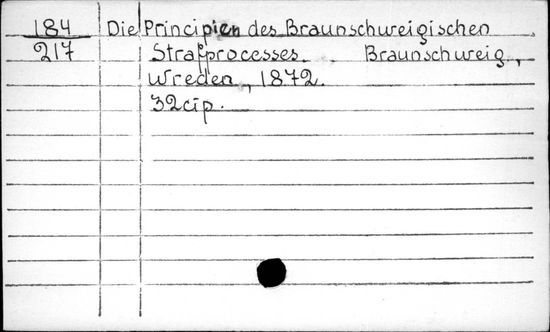 184 Die Principien des Braunschweigischen
217 Strafprocesses. Braunschweig,
Wreden, 1872.
32cip.